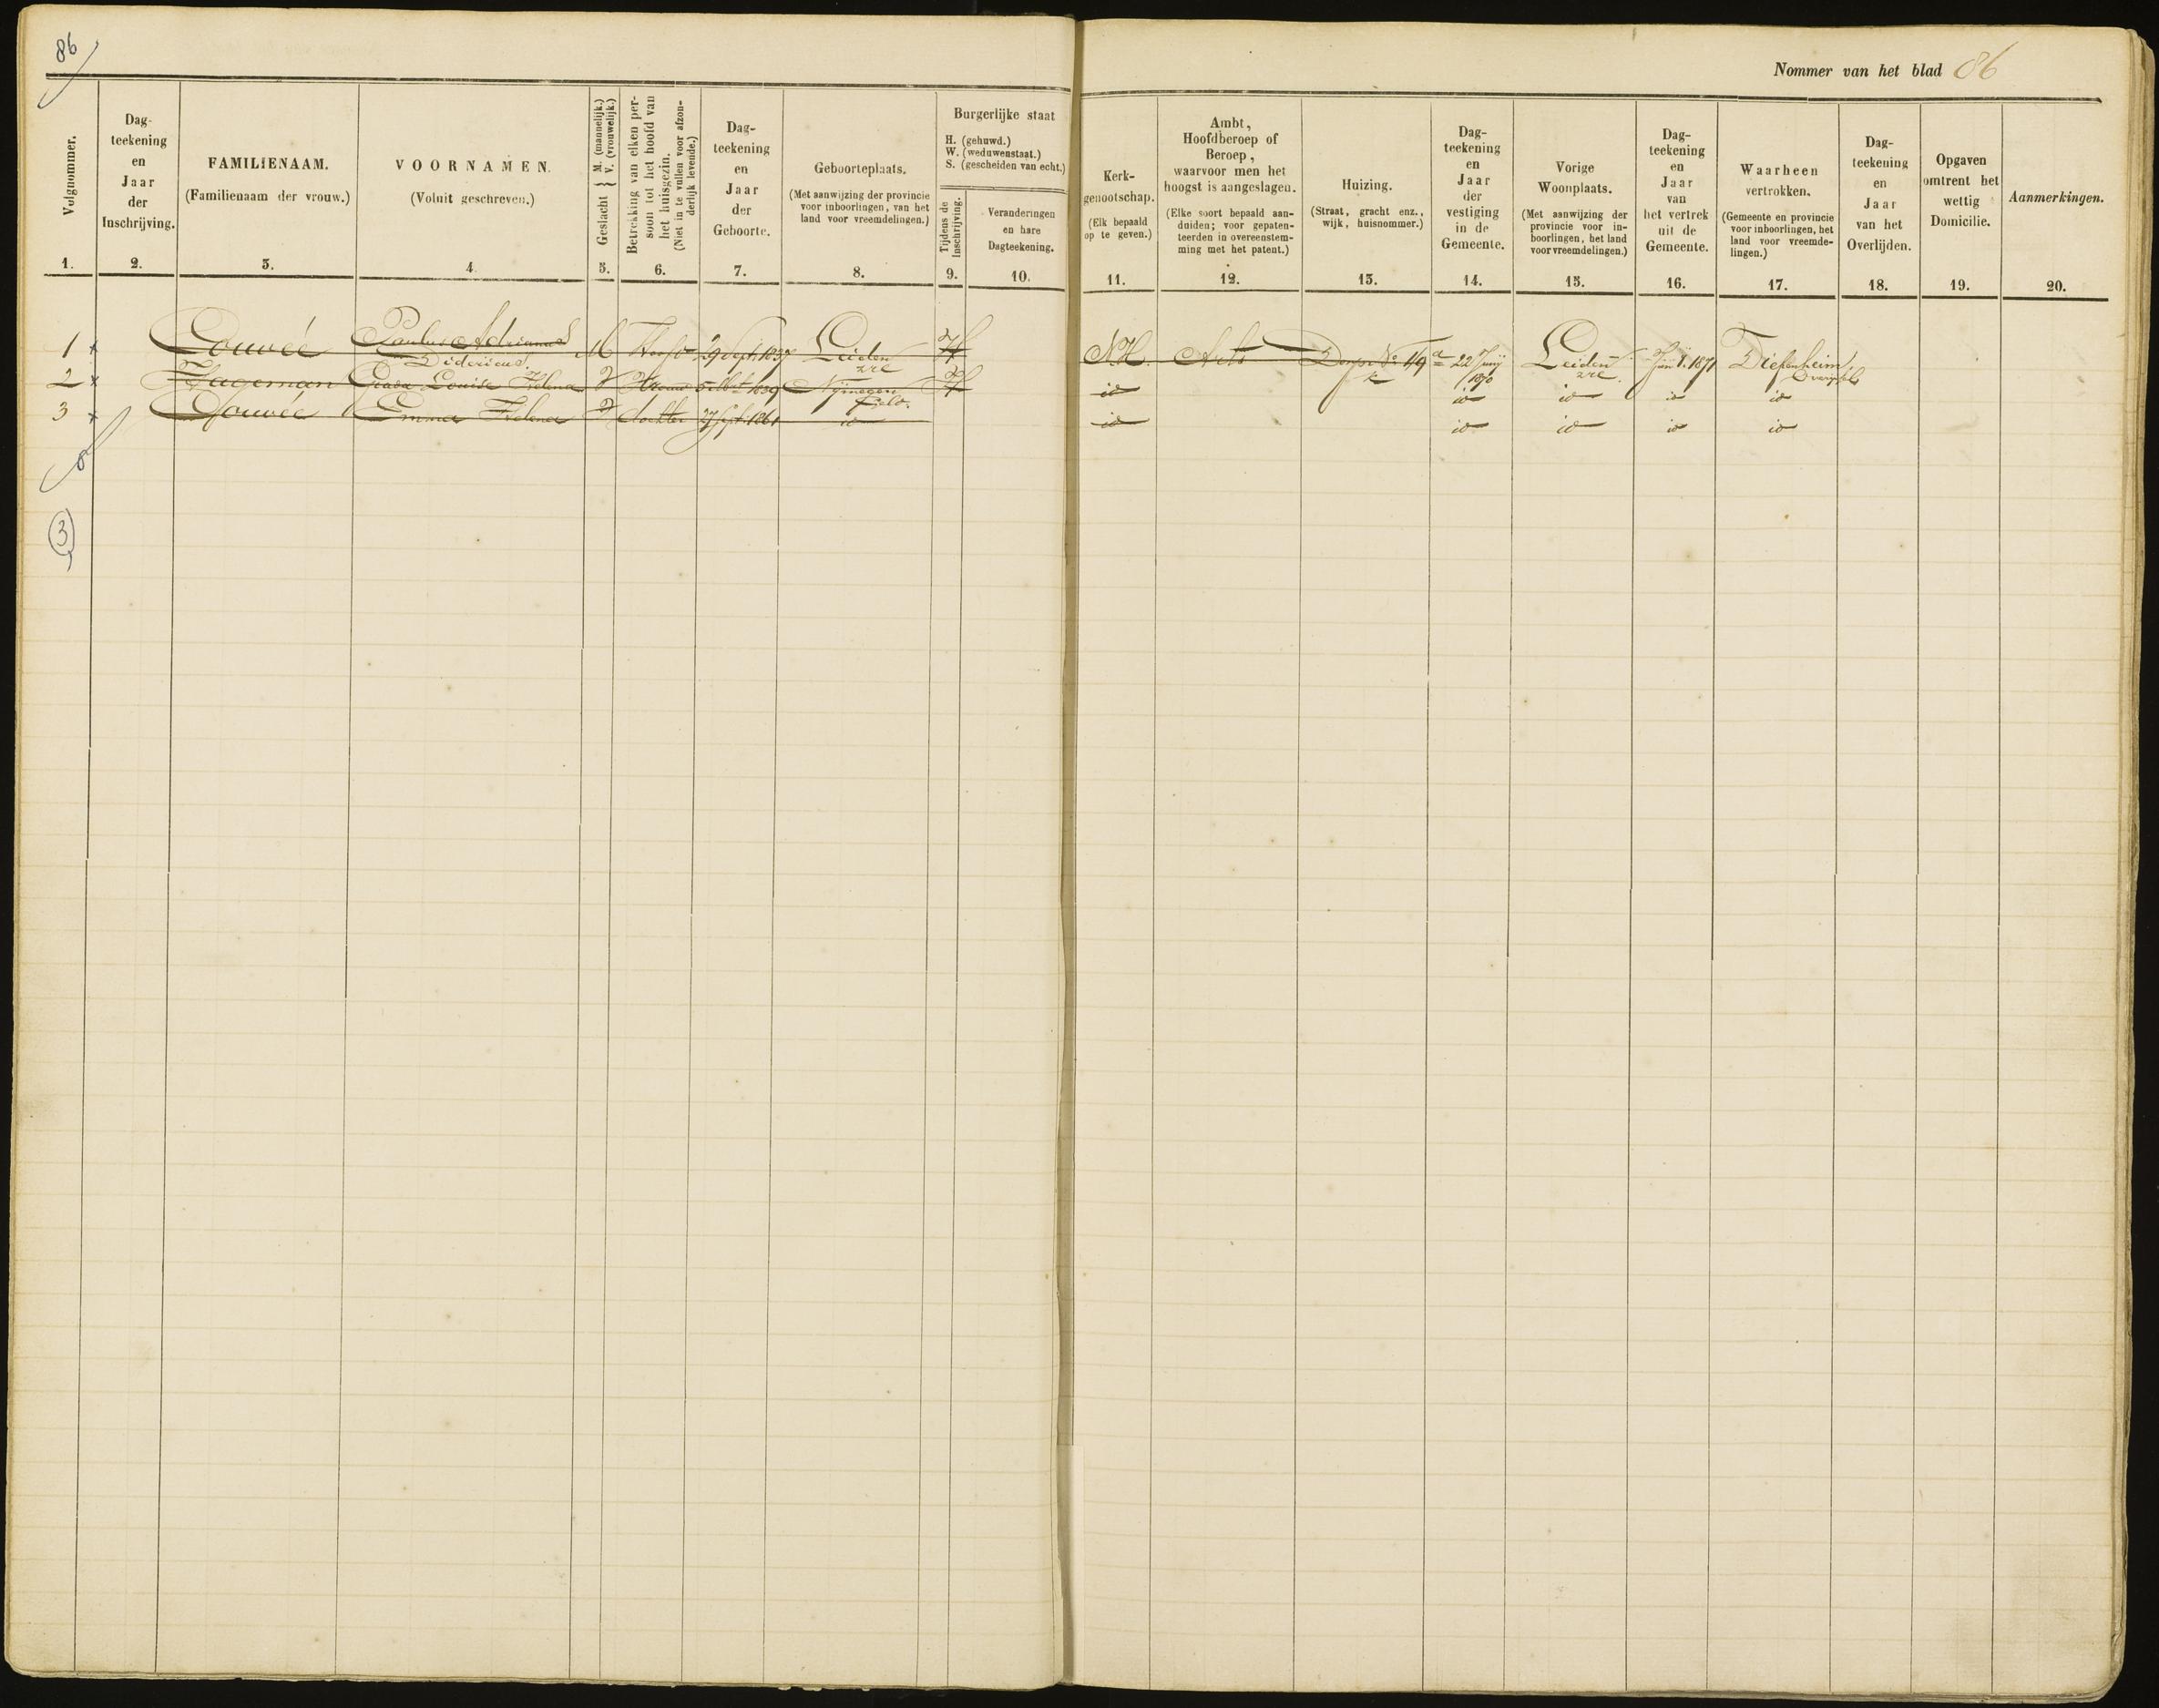 86
Nommer van het blad 86
Volgnommer.
1.
Dag-
teekening
en
Jaar
der
Inschrijving.
2.
FAMILIENAAM.
(Familienaam der vrouw.)
3.
VOORNAMEN.
(Voluit geschreven.)
4.
Geslacht } M. (mannelijk.)
V. (vrouwelijk.)
5.
Betrekking van elken per-
soon tot het hoofd van
het huisgezin.
(Niet in te vullen voor afzon-
derlijk levende.)
6.
Dag-
teekening
en
Jaar
der
Geboorte.
7.
Geboorteplaats.
(Met aanwijzing der provincie
voor inboorlingen, van het
land voor vreemdelingen.)
8.
Burgerlijke staat
H. (gehuwd.)
W. (weduwenstaat.)
S. (gescheiden van echt.)
Tijdens de
Inschrijving.
9.
Veranderingen
en hare
Dagteekening.
10.
Kerk-
genootschap.
(Elk bepaald
op te geven.)
11.
Ambt,
Hoofdberoep of
Beroep,
waarvoor men het
hoogst is aangeslagen.
(Elke soort bepaald aan-
duiden; voor gepaten-
teerden in overeenstem-
ming met het patent.)
12.
Huizing.
(Straat, gracht enz.,
wijk, huisnommer.)
13.
Dag-
teekening
en
Jaar
der
vestiging
in de
Gemeente.
14.
Vorige
Woonplaats.
(Met aanwijzing der
provincie voor in-
boorlingen, het land
voor vreemdelingen.)
15.
Dag-
teekening
en
Jaar
van
het vertrek
uit de
Gemeente.
16.
Waarheen
vertrokken.
(Gemeente en provincie
voor inboorlingen, het
land voor vreemde-
lingen.)
17.
Dag-
teekening
en
Jaar
van het
Overlijden.
18.
Opgaven
omtrent het
wettig
Domicilie.
19.
Aanmerkingen.
20.
1 x Couvée Paulus Adrianus M Hoofd 29 Sept. 1837 Leiden H NH. Arts Dorp No 119a 22 Junij Leiden Junij 1. 1871 Diepenheim
Didericus. ZHl 1870 ZHl. Overijssel
2 x Hageman Louise Helena V Vrouw 5 1839 Nijmegen H id id id id id
Geld.
3 x Couvée Emma Helena V dochter 27 Sept. 1861 id id id id id id
3